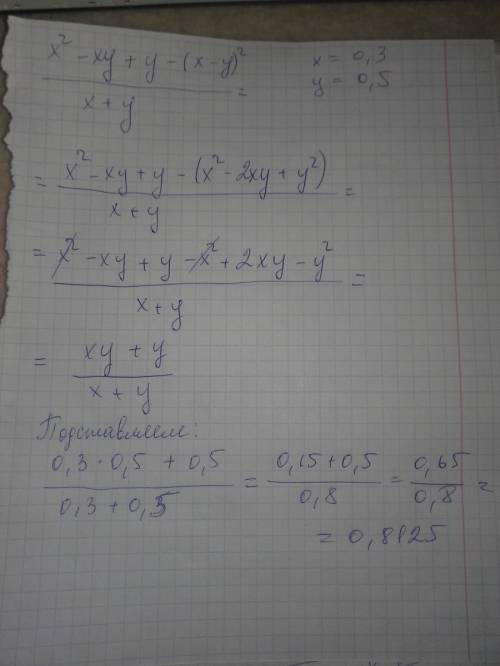 x² - xy + y - (x - y)² x = 0,3
x + y = y = 0,5
= x² - xy + y - (x² - 2xy + y²) =
x + y
= x² - xy + y - x² + 2xy - y² =
x + y
= xy + y
x + y
Подставляем:
0,3 · 0,5 + 0,5 = 0,15 + 0,5 = 0,65 =
0,3 + 0,5 0,8 0,8
= 0,8125